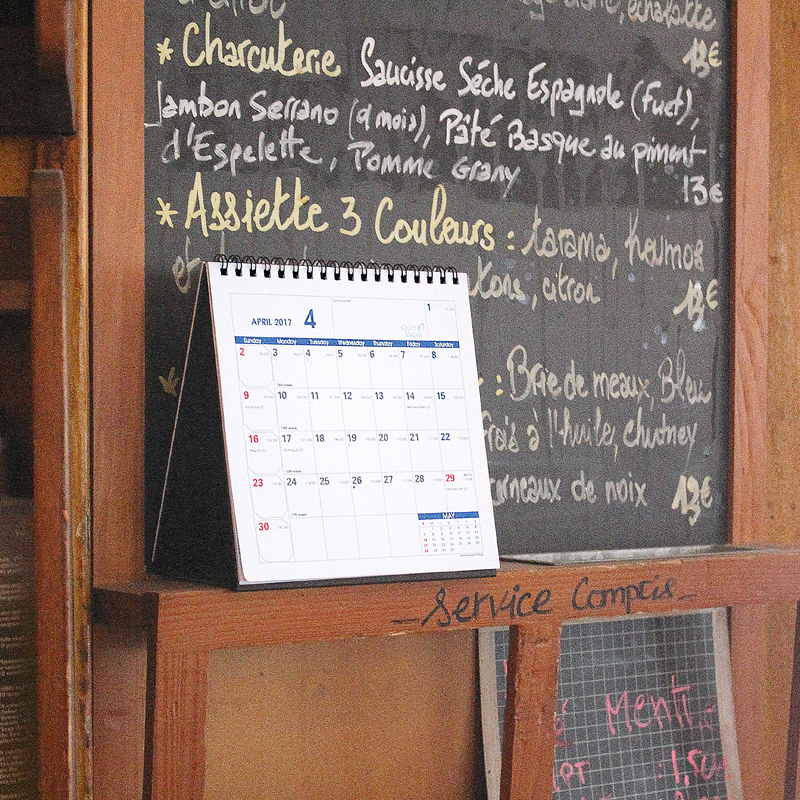 échalotte
13€
* Charcuterie Saucisse Séche Espagnole (Fuet),
Jambon Serrano (9 mois), Pâté Basque au piment
d'Espelette, Pomme Grany
13€
* Assiette 3 Couleurs : tarama, houmos
et citron
: Brie de meaux, Bleu
frais à l'huile, chutney
cerneaux de noix
13€
APRIL 2017 4
Sunday Monday Tuesday Wednesday Thursday Friday Saturday
1
2 3 4 5 6 7 8
9 10 11 12 13 14 15
16 17 18 19 20 21 22
23 24 25 26 27 28 29
30
MAY
_ Service Compris _
Menth
1,50